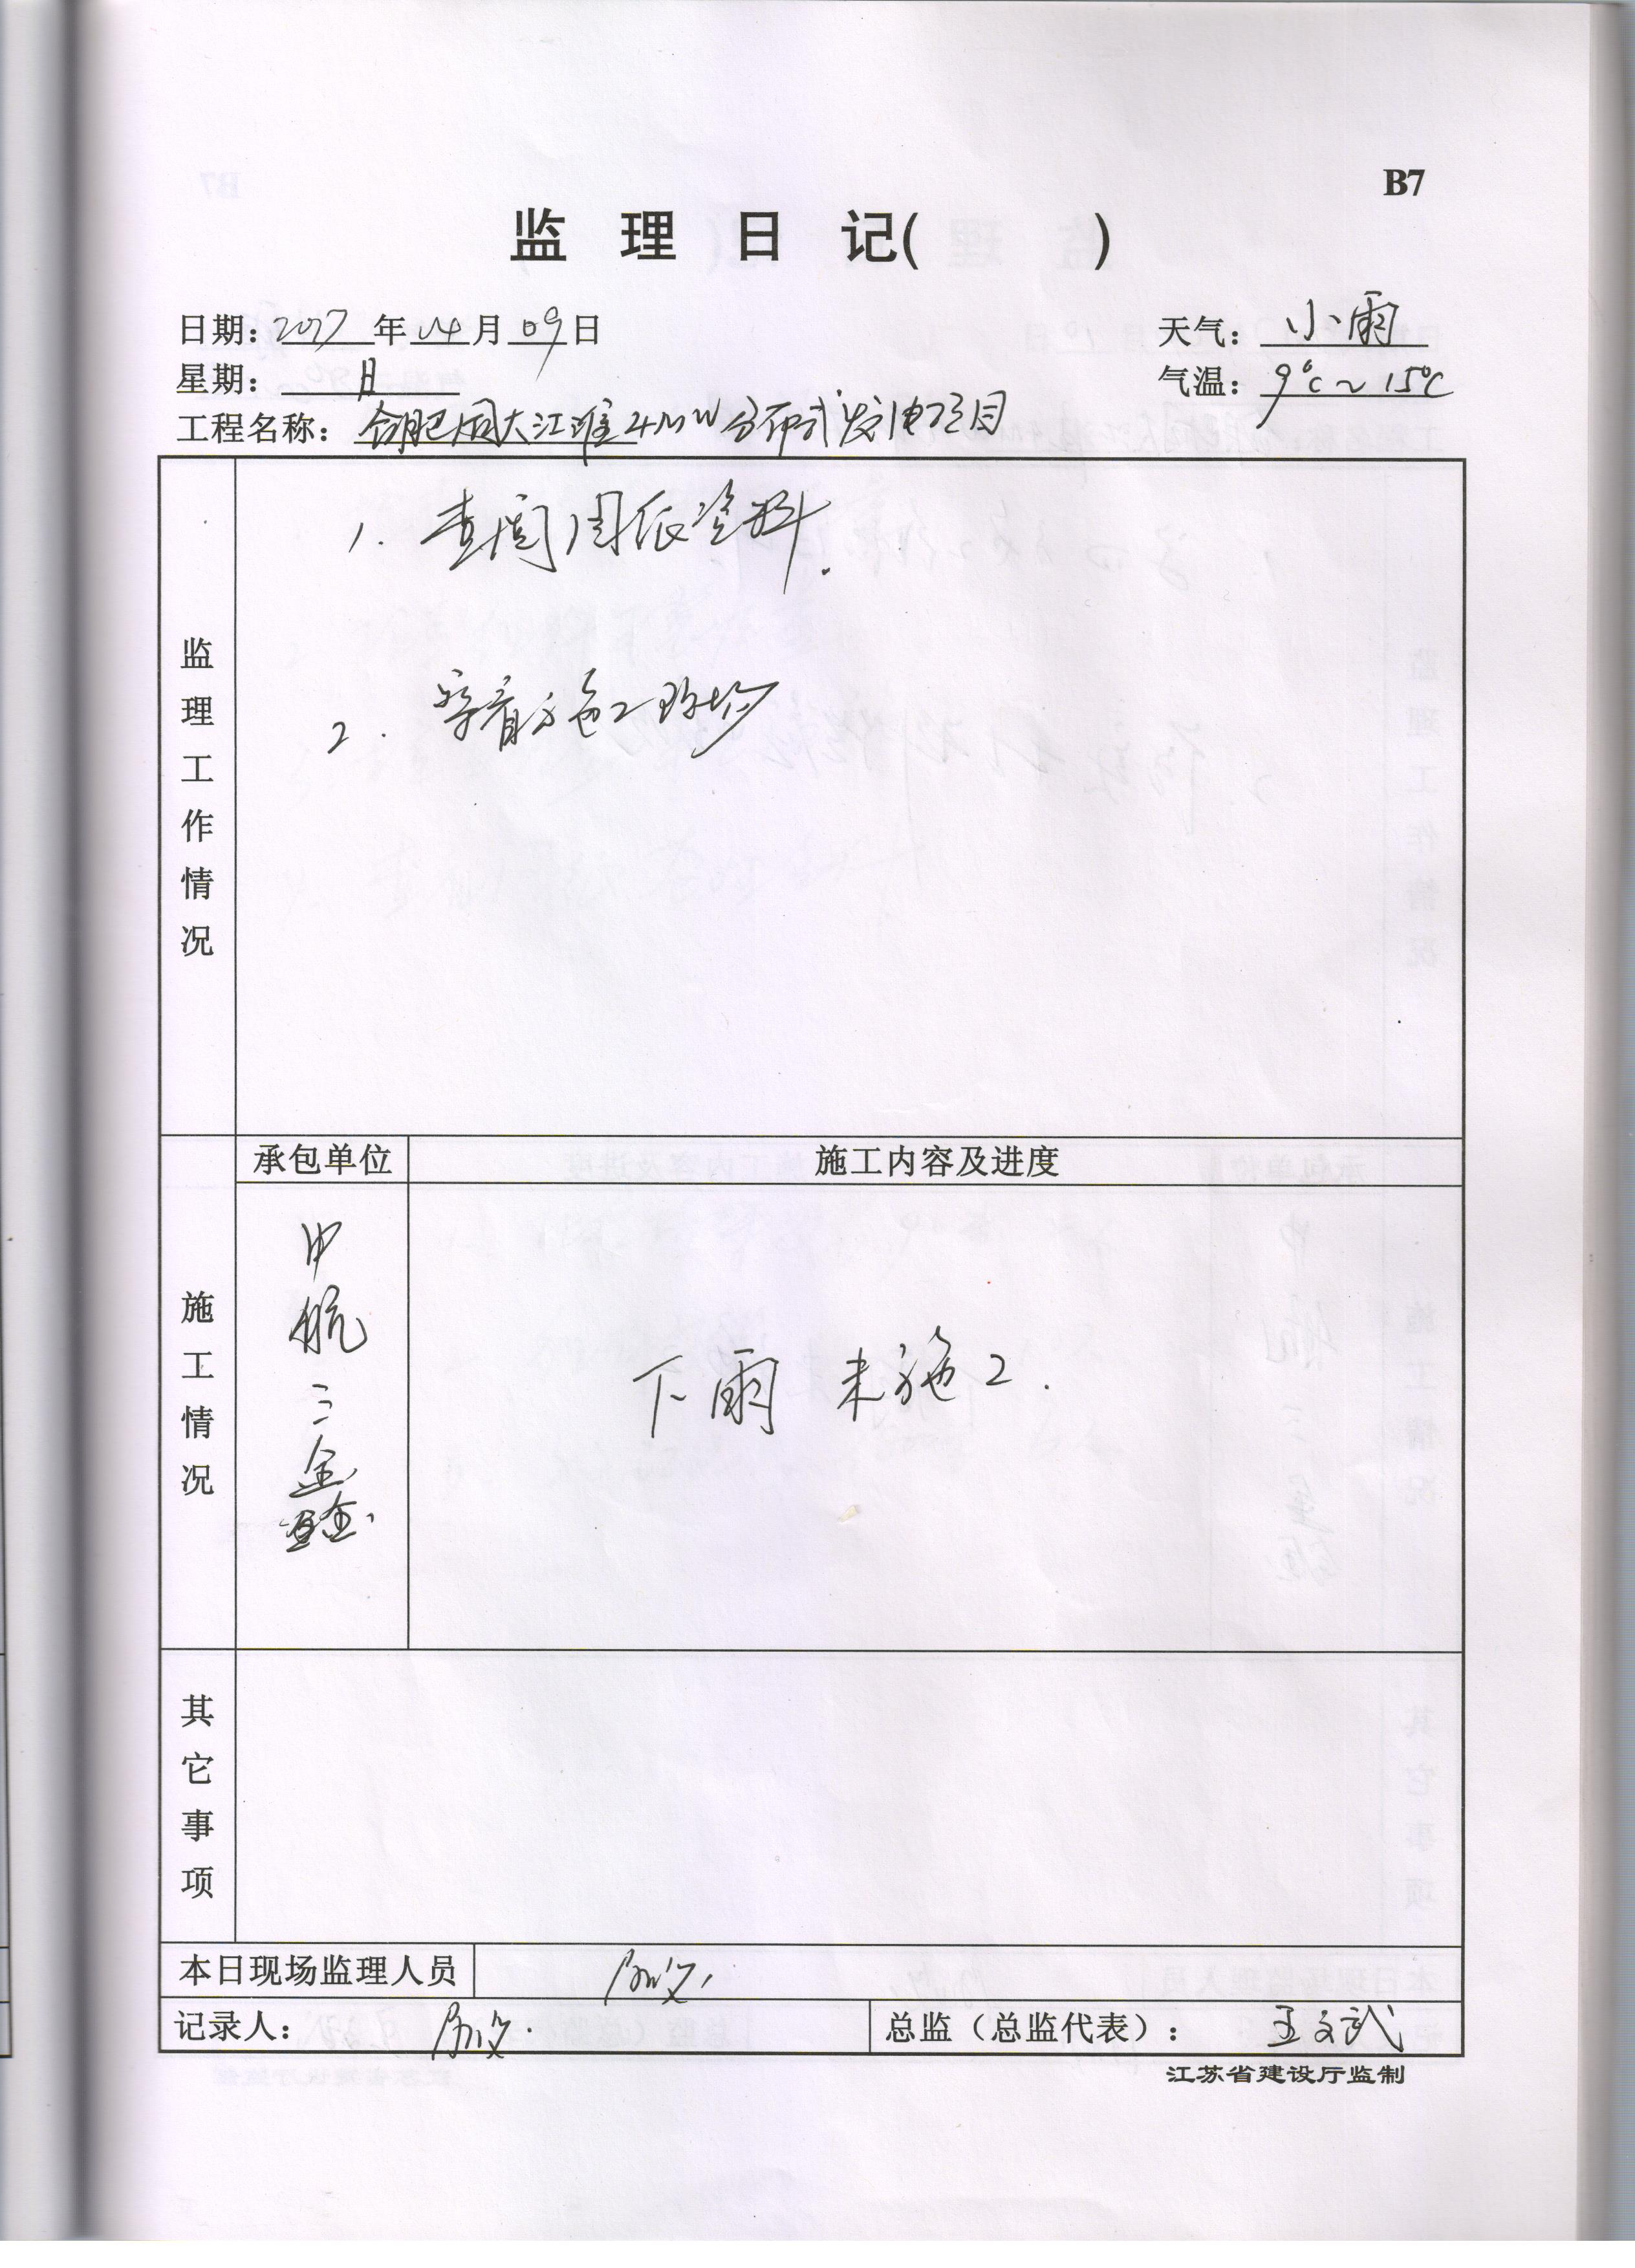 B7
监理日记( )
日期: 2017年04月09日
天气: 小雨
星期: 日
气温: 9℃~15℃
工程名称: 合肥阳大江淮4MW分布式发电项目
监理工作情况
1. 查阅图纸资料.
2. 察看施工现场
施工情况
承包单位
施工内容及进度
中航三鑫
下雨 未施工.
其它事项
本日现场监理人员
记录人:
总监(总监代表): 王文武
江苏省建设厅监制